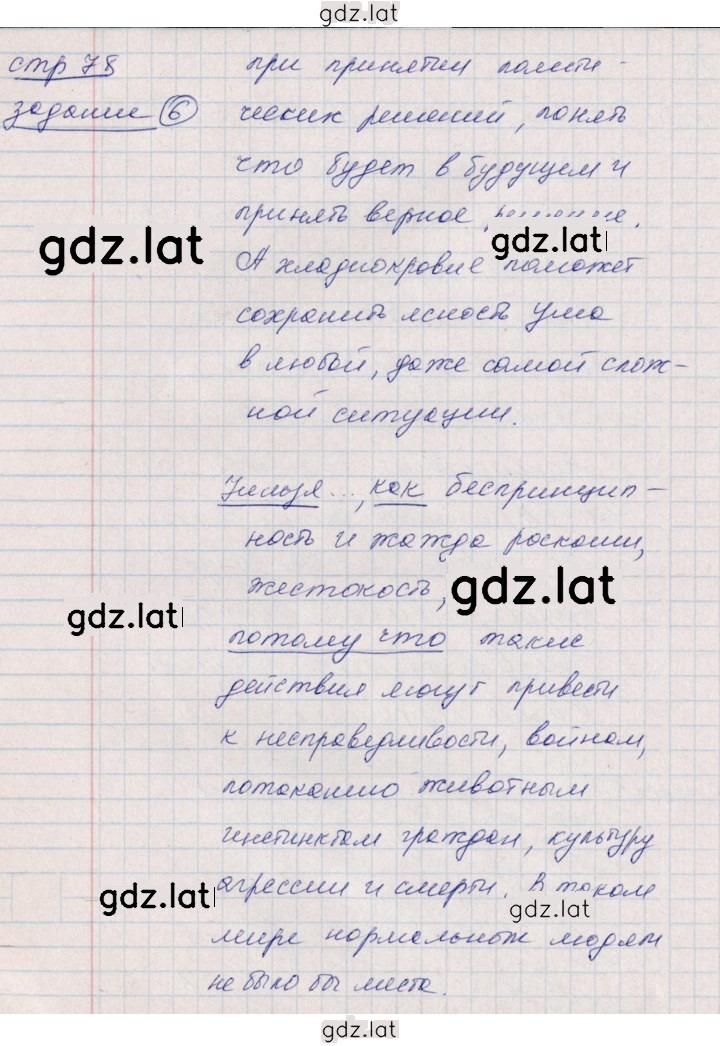 gdz.lat
стр 78
задание 6
при принятии полити-
ческих решений, понять
что будет в будущем и
принять верное
gdz.lat
gdz.lat
А хладнокровие поможет
сохранить ясность ума
в любой, даже самой слож-
ной ситуации.
Нельзя..., как беспринцип-
ность и жажда роскоши,
жестокость,
gdz.lat
gdz.lat
потому что такие
действия могут привести
к несправедливости, войнам,
потаканию животным
инстинктам граждан, культуру
агрессии и смерти. В таком
gdz.lat
gdz.lat
мире нормальным людям
не было бы места.
gdz.lat